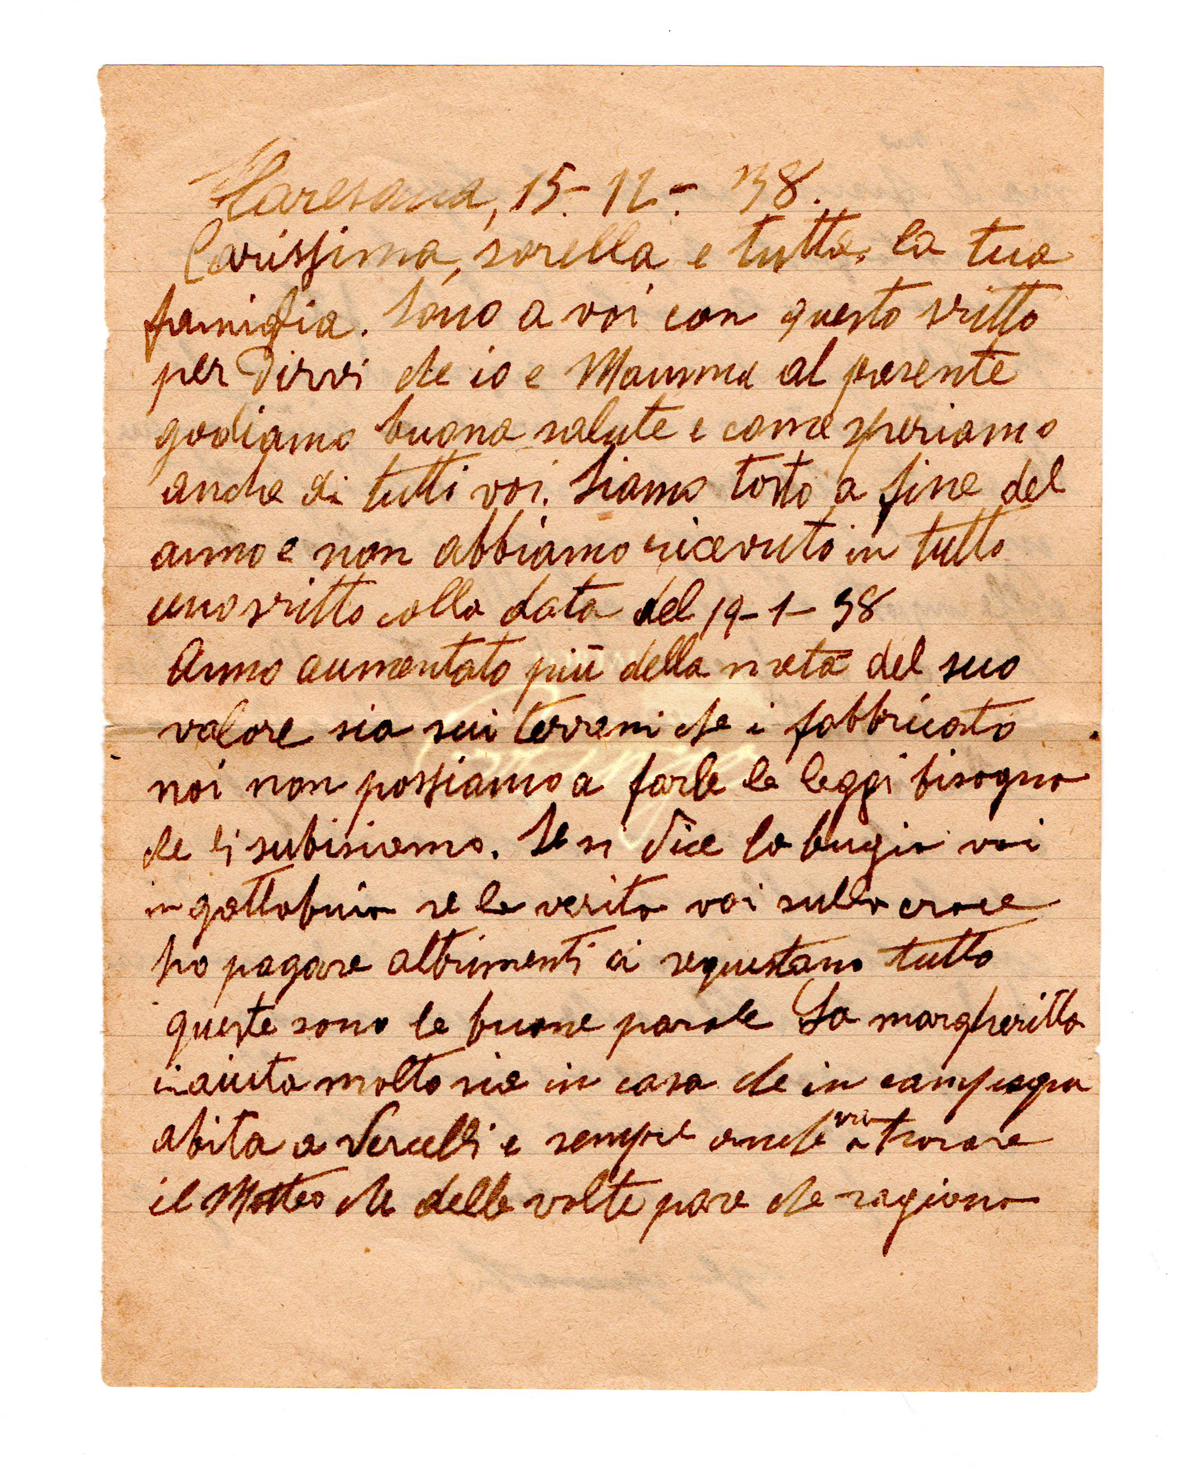 15-12-38.
Carissima, sorella e tutta, la tua
famiglia. Sono a voi con questo scritto
per Dirvi che io e Mamma al presente
godiamo buona salute e come speriamo
anche di tutti voi. Siamo tosto a fine del
anno e non abbiamo ricevuto in tutto
uno scritto colla data del 19-1-38
Anno aumentato più della metà del suo
valore sia sui terreni che i fabbricato
noi non possiamo a farle le leggi bisogno
che li subisiamo. Se si dice la bugia vai
in gattabuia se la verita vai sulla croce
ho pagare altrimenti ci sequestano tutto
queste sono le buone parole La margheritta
in aiuta molto sia in casa che in campagna
abita a Vercelli e sempre anche a trovare
il Matteo che delle volte pare che ragiona